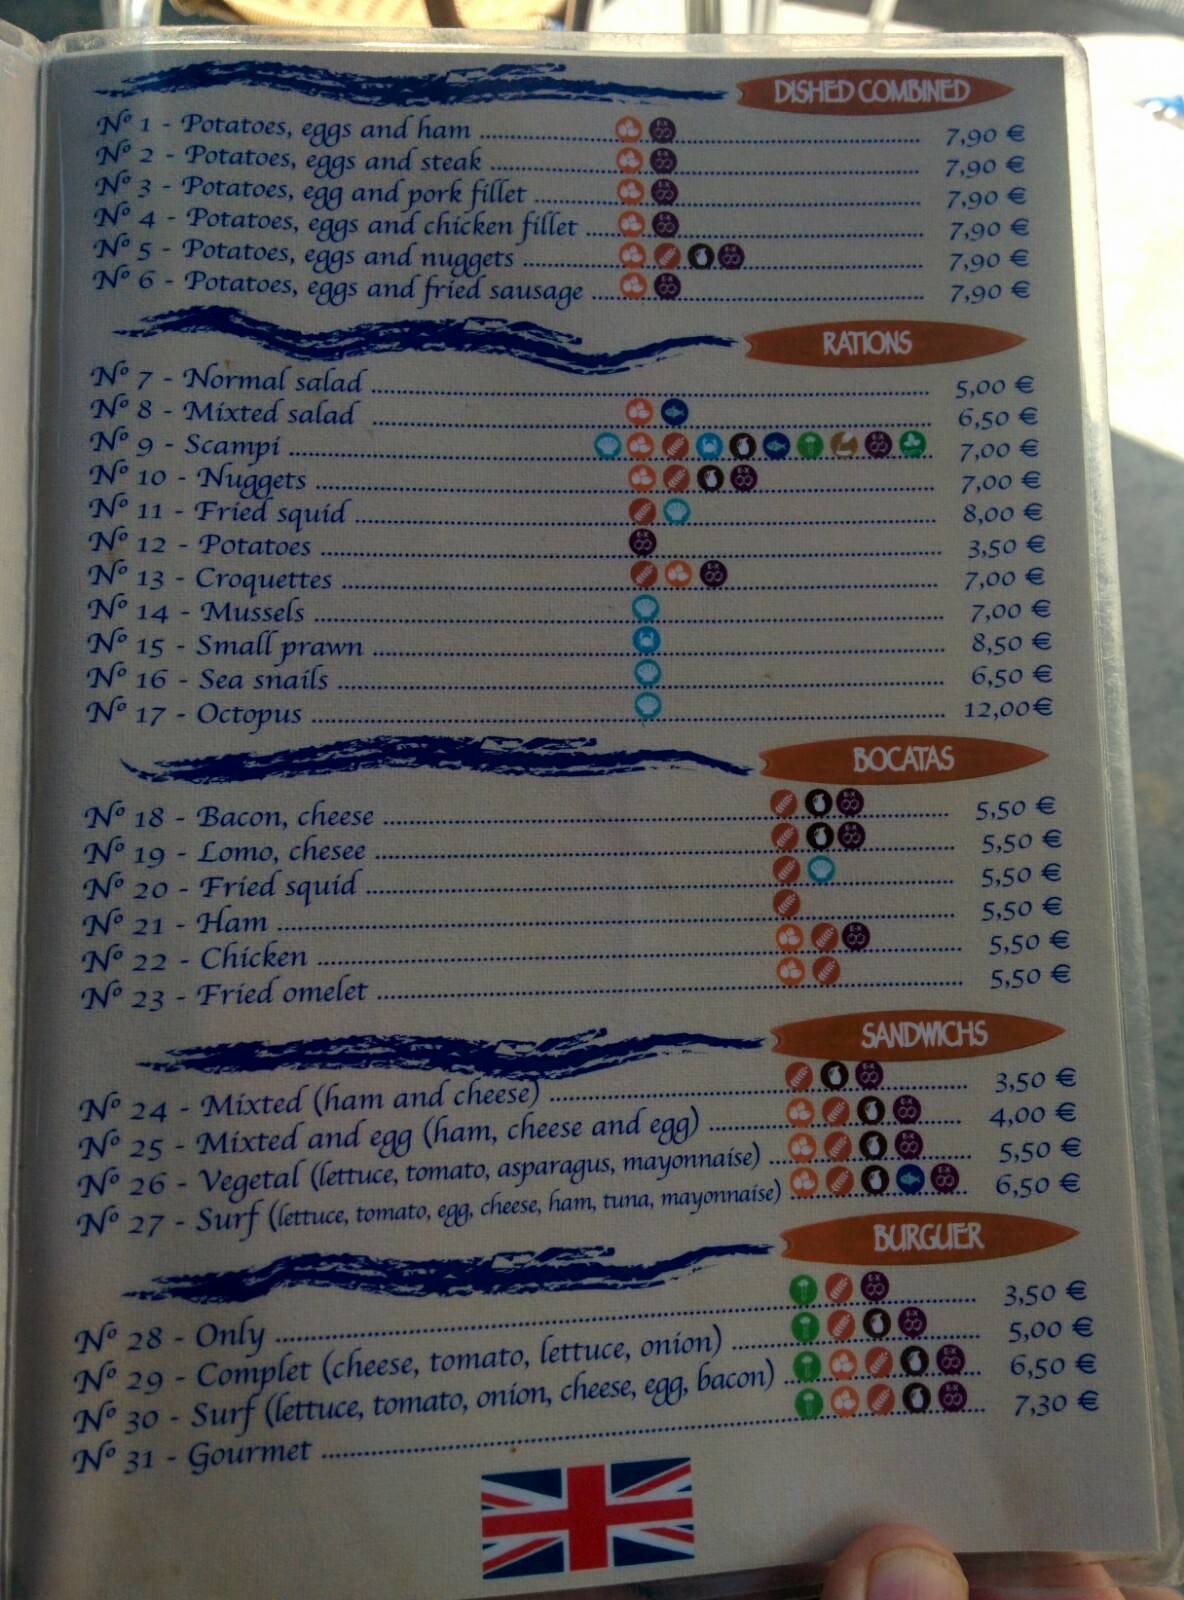 DISHED COMBINED
Nº 1 - Potatoes, eggs and ham 7,90 €
Nº 2 - Potatoes, eggs and steak 7,90 €
Nº 3 - Potatoes, egg and pork fillet 7,90 €
Nº 4 - Potatoes, eggs and chicken fillet 7,90 €
Nº 5 - Potatoes, eggs and nuggets 7,90 €
Nº 6 - Potatoes, eggs and fried sausage 7,90 €
RATIONS
Nº 7 - Normal salad 5,00 €
Nº 8 - Mixted salad 6,50 €
Nº 9 - Scampi 7,00 €
Nº 10 - Nuggets 7,00 €
Nº 11 - Fried squid 8,00 €
Nº 12 - Potatoes 3,50 €
Nº 13 - Croquettes 7,00 €
Nº 14 - Mussels 7,00 €
Nº 15 - Small prawn 8,50 €
Nº 16 - Sea snails 6,50 €
Nº 17 - Octopus 12,00€
BOCATAS
Nº 18 - Bacon, cheese 5,50 €
Nº 19 - Lomo, chesee 5,50 €
Nº 20 - Fried squid 5,50 €
Nº 21 - Ham 5,50 €
Nº 22 - Chicken 5,50 €
Nº 23 - Fried omelet 5,50 €
SANDWICHS
Nº 24 - Mixted (ham and cheese) 3,50 €
Nº 25 - Mixted and egg (ham, cheese and egg) 4,00 €
Nº 26 - Vegetal (lettuce, tomato, asparagus, mayonnaise) 5,50 €
Nº 27 - Surf (lettuce, tomato, egg, cheese, ham, tuna, mayonnaise) 6,50 €
BURGUER
Nº 28 - Only 3,50 €
Nº 29 - Complet (cheese, tomato, lettuce, onion) 5,00 €
Nº 30 - Surf (lettuce, tomato, onion, cheese, egg, bacon) 6,50 €
Nº 31 - Gourmet 7,30 €